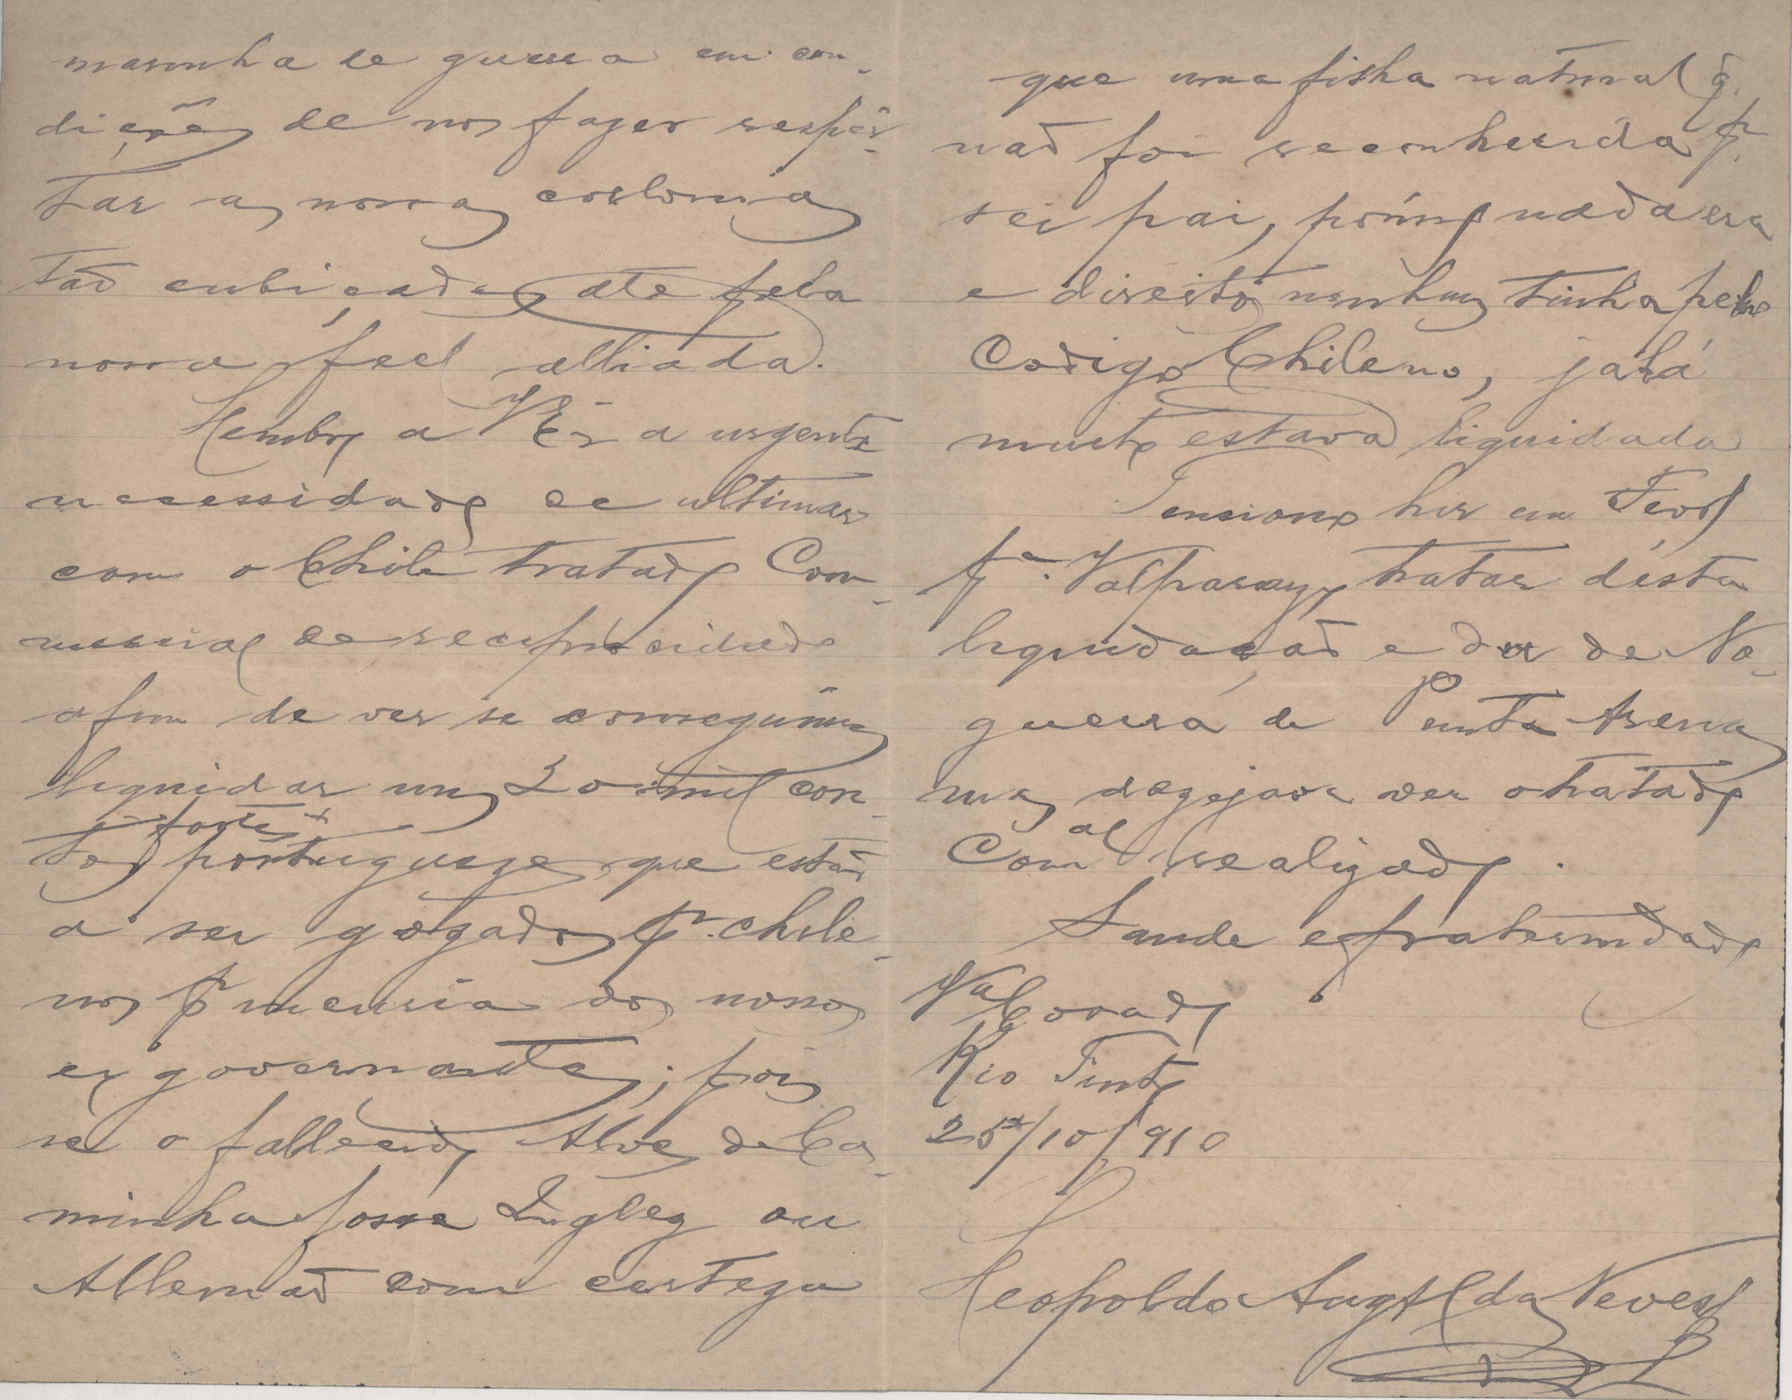 marinha de guerra em con-
dições de nos fazer respei-
tar as nossas colonias
tão cubiçadas até pela
nossa fiel alliada.
Lembro a V Exª a urgente
necessidade de ultimar
com o Chile tratado Com-
mercial de reciprocidade
afim de ver se conseguimos
liquidar uns 20 mil con-
tos fortes portuguezes que estão
a ser gozados pr. chile-
nos pr incuria dos nossos
ex governantes; pois
se o fallecido Alves de Ca-
minha fosse Inglez ou
Allemão com certeza
que uma filha natural q.
não foi reconhecida p.
seu pai, porisso nada era
e direitos nenhuns tinha pelo
Codigo Chileno, já há
muito estava liquidada
Tensiono hir em Fevrº
pª. Valparaizo tratar désta
liquidação e da de No-
gueira de Punta Arenas
mas dezejava ver o tratado
Comal realizado.
Saude e fraternidade
Vª Covado
Rio Tinto
25/10/910
Leopoldo Augtº das Neves